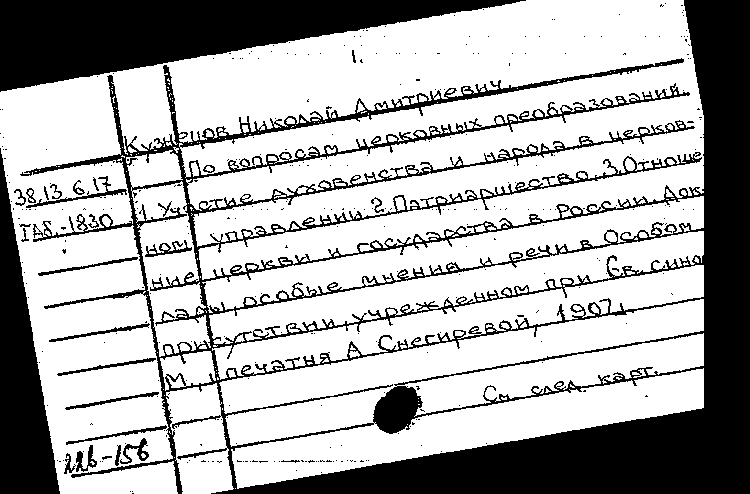 1.
Кузнецов, Николай Дмитриевич.
По вопросам церковных преобразований.
38.13.6.17
1. Участие духовенства и народа в церков-
ГАб.-1830
ном управлении 2. Патриаршество. 3. Отноше
ние церкви и государства в России. Док-
лады, особые мнения и речи в Особом
присутствии, учрежденном при Св. сино
М., печатня А Снегиревой, 1907г.
См. след. карт.
22б-156